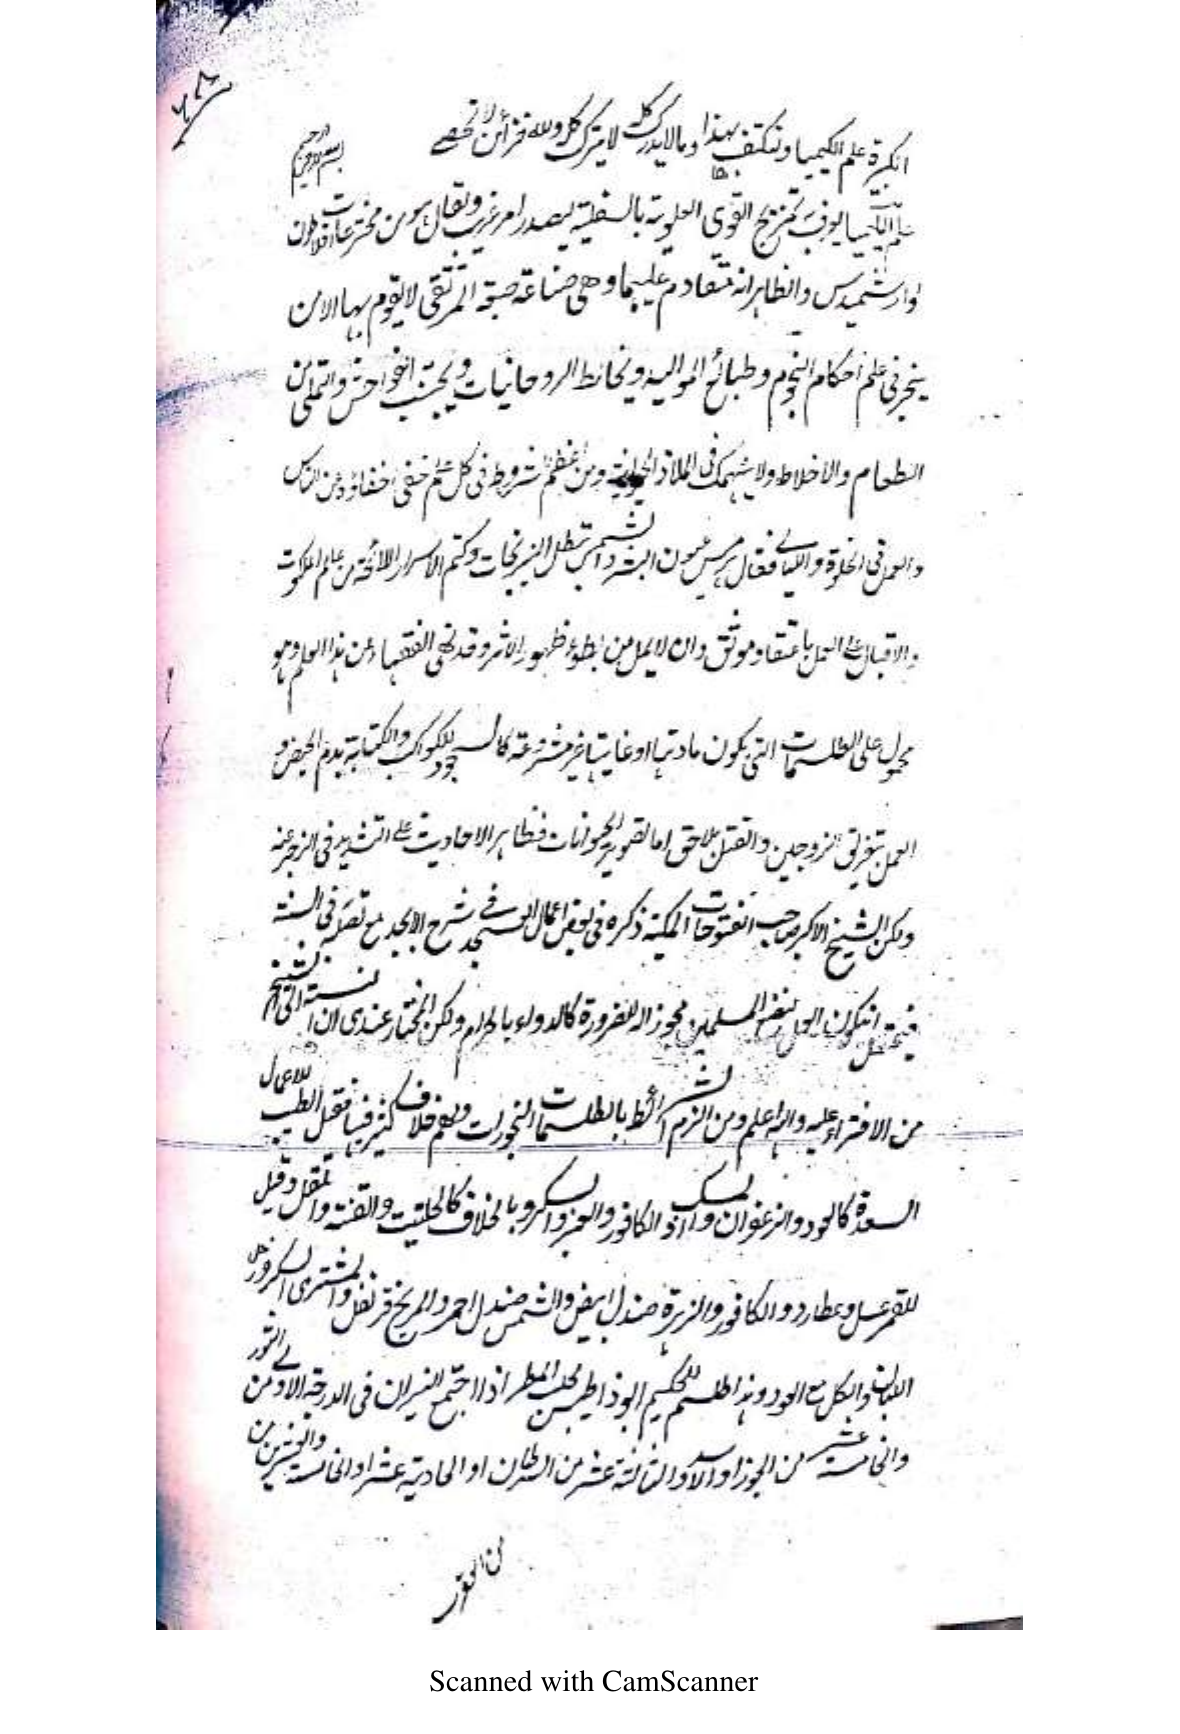 ٦٨
انكرة علم الكيميا ونكتف بهذا وما لا يدرك كله لا يترك كله ولله خزائن لا تحصى
بسم الله الرحمن الرحيم
علم يعرف تمزيج القوى العلوية بالسفلية ليصدر امر غريب ويقال هو من مخترعات افلاطون
وارشميدس والظاهر انه متقادم عليهما وهى صناعة صعبة المرتقى لا يقوم بها الا من
يتبحر فى علم احكام النجوم وطبائع المواليد ويخالط الروحانيات ويجتنب الفواحش والتملى من
الطعام والاخلاط ولا ينهمك فى الملاذ الحيوانية ومن اعظم شروط فى كل علم خفى اخفاؤه عن الناس
والعمل فى الخلوة والليالى فقال هرمس عيون البشر والشمس تبطل النيرنجات وكتم الاسرار اللائحة من عالم الملكوت
والاقبال على العمل باعتقاد موثق وان لا يمل من بطوء ظهور الاثر وقد نهى الفقهاء عن هذا العلم وهو
محمول على الطلسمات التى يكون مادتها او غايتها غير مشروعة كالسجود للكواكب والكتابة بدم الحيض و
العمل بتفريق الزوجين والقتل بلا حق اما تصوير الحيوانات فظاهر الاحاديث على التشديد فى الزجر عنه
ولكن الشيخ الاكبر صاحب الفتوحات المكية ذكره فى بعض اعمال فى شرح الابجد مع تصرفه فى السنة
فيحتمل ان يكون العمل لنفع المسلمين مجوزا له للضرورة كالدواء بالحرام ولكن المختار عندى ان النسبة الى الشيخ
من الافتراء عليه والله اعلم ومن الزم الشرائط بالطلسمات البخورات وبعضهم خلاف كثير فيها فقيل الطيب للاعمال
السعدة كالعود والزعفران والمسك والكافور والعنبر والسكر وبالخلاف كالحلتيت والقنة والمقل وقيل
للقمر عسل وعطارد والكافور والزهرة صندل ابيض والشمس صندل احمر والمريخ قرنفل والمشترى السكر وزحل
اللبان والكل مع العود وهذا طلسم للحكيم لجلب المطر اذا اجتمع النيران فى الدرجة الاولى من الثور
والخامسة عشر من الجوزا والاسد والثالثة عشر من السرطان او الحادية عشر او الخامسة والعشرين
من الثور
Scanned with CamScanner